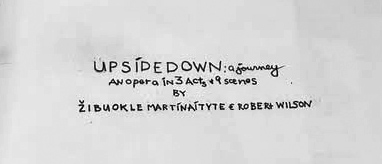 UPSÍDEDOWN: a journey
AN opera ÍN 3 Acts + 9 scenes
BY
ŽIBUOKLE MARTÍNAÍTYTE & ROBERT WILSON